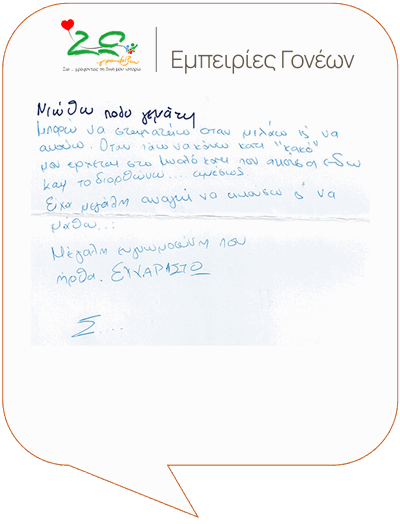 Εμπειρίες Γονέων
Νιώθω πολύ γεμάτη
Μπορώ να σταματάω όταν μιλάω κ' να
ακούω. Όταν πάω να κάνω κάτι "κακό"
μου έρχεται στο μυαλό κάτι που άκουσα εδώ
και το διορθώνω.... αμέσως.
Έχω μεγάλη ανάγκη να ακούσω κ' να
μάθω...
Μεγάλη ευγνωμοσύνη που
ήρθα. ΕΥΧΑΡΙΣΤΩ
Σ....